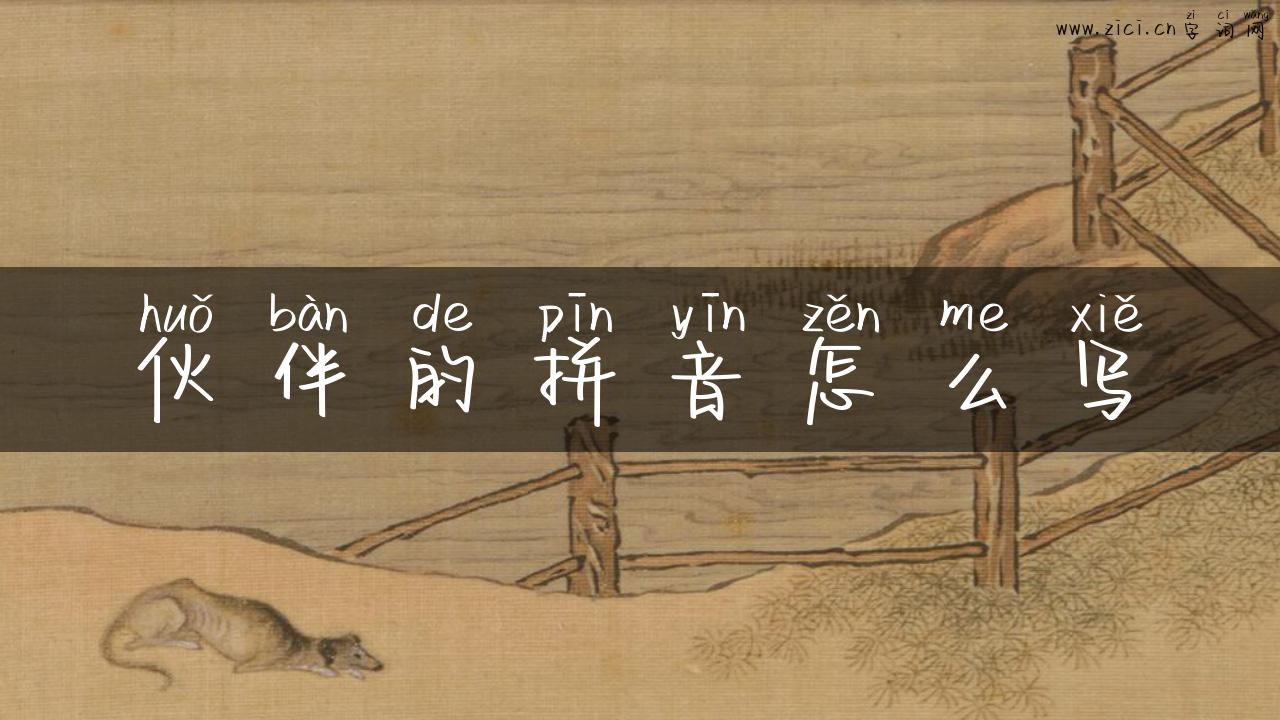 zi ci wang
www.zici.cn 字词网
huǒ bàn de pīn yīn zěn me xiě
伙伴的拼音怎么写